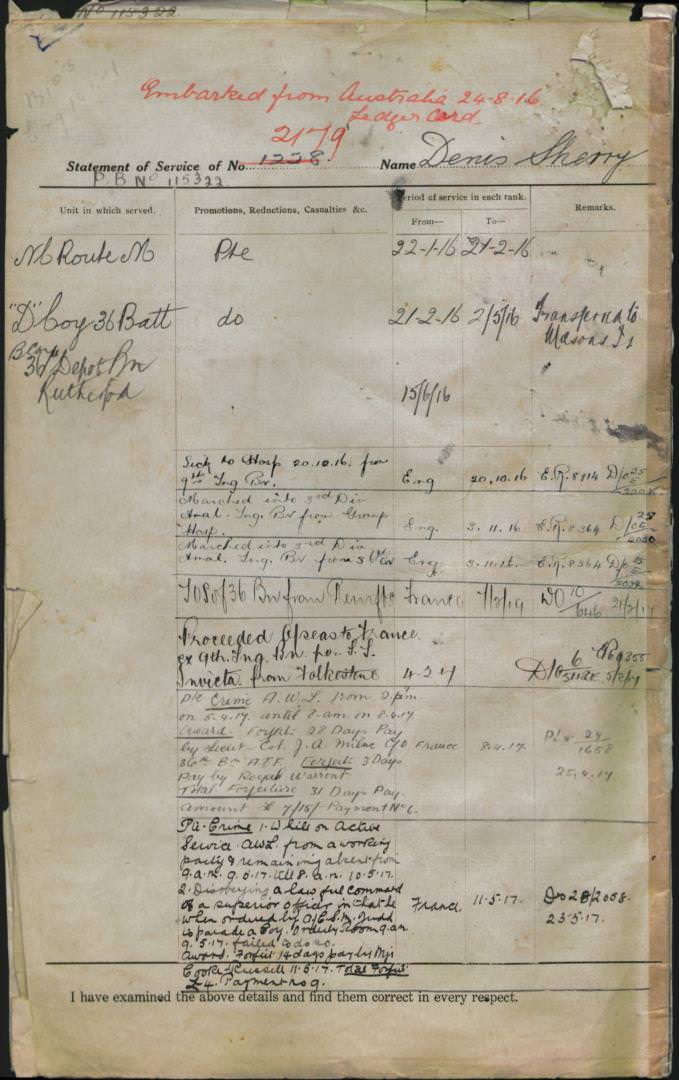 No 115322
Embarked from Australia 24-8-16
Ledger Card
2179
Statement of Service of No. 1228 Name Denis Sherry
P.B No 115322
Unit in which served. Promotions, Reductions, Casualties &c. Period of service in each rank. Remarks.
From— To—
Route M Pte 22-1-16 21-2-16
"D" Coy 36 Batt do 21-2-16 2/5/16 Transferred to
36 Depot Bn
Rutherford 15/6/16
Sick to Hosp 20.10.16. from
9th Tng Bn. Eng 20.10.16 E.R. 8114 D/o 25
Marched into 3rd Div
Amal. Tng. Bn from Group
Hosp. Eng. 3.11.16 E.R. 8364 D/o 25
Marched into 3rd Div
Amal. Tng. Bn from Eng 3.11.16. E.R. 8364
TOS of 36 Bn from France DO 10/646
Proceeded O/seas to France
ex 9th. Tng. Bn. per S.S.
Invicta from Folkestone 4.2.17
Pte Crime A.W.L. from 2 pm
on 5.4.17. until 8. am. on 8.4.17
Award. Forfeits 28 Days Pay
by Lieut Col. J. A. Milne C/O France 8.4.17.
36th Bn A.I.F. Forfeits 3 Days
Pay by Royal Warrant 25.4.17
Total Forfeiture 31 Days Pay.
Amount £ 7/15/- Payment No 6.
Pte. Crime 1. While on Active
Service. AWL. from a working
party & remaining absent from
9. a.m. 9.5.17. till 8. a.m. 10.5.17.
2. Disobeying a lawful command
of a superior officer in that he
when ordered by Judd France 11.5.17. Do 28/2058.
to parade a Coy. Orderly Room 9 am 23.5.17.
9.5.17. failed to do so.
Award. Forfeit 14 days pay by Mjr
Cooke-Russell 11.5.17. Total Forfeit
£4. Payment no 9.
I have examined the above details and find them correct in every respect.